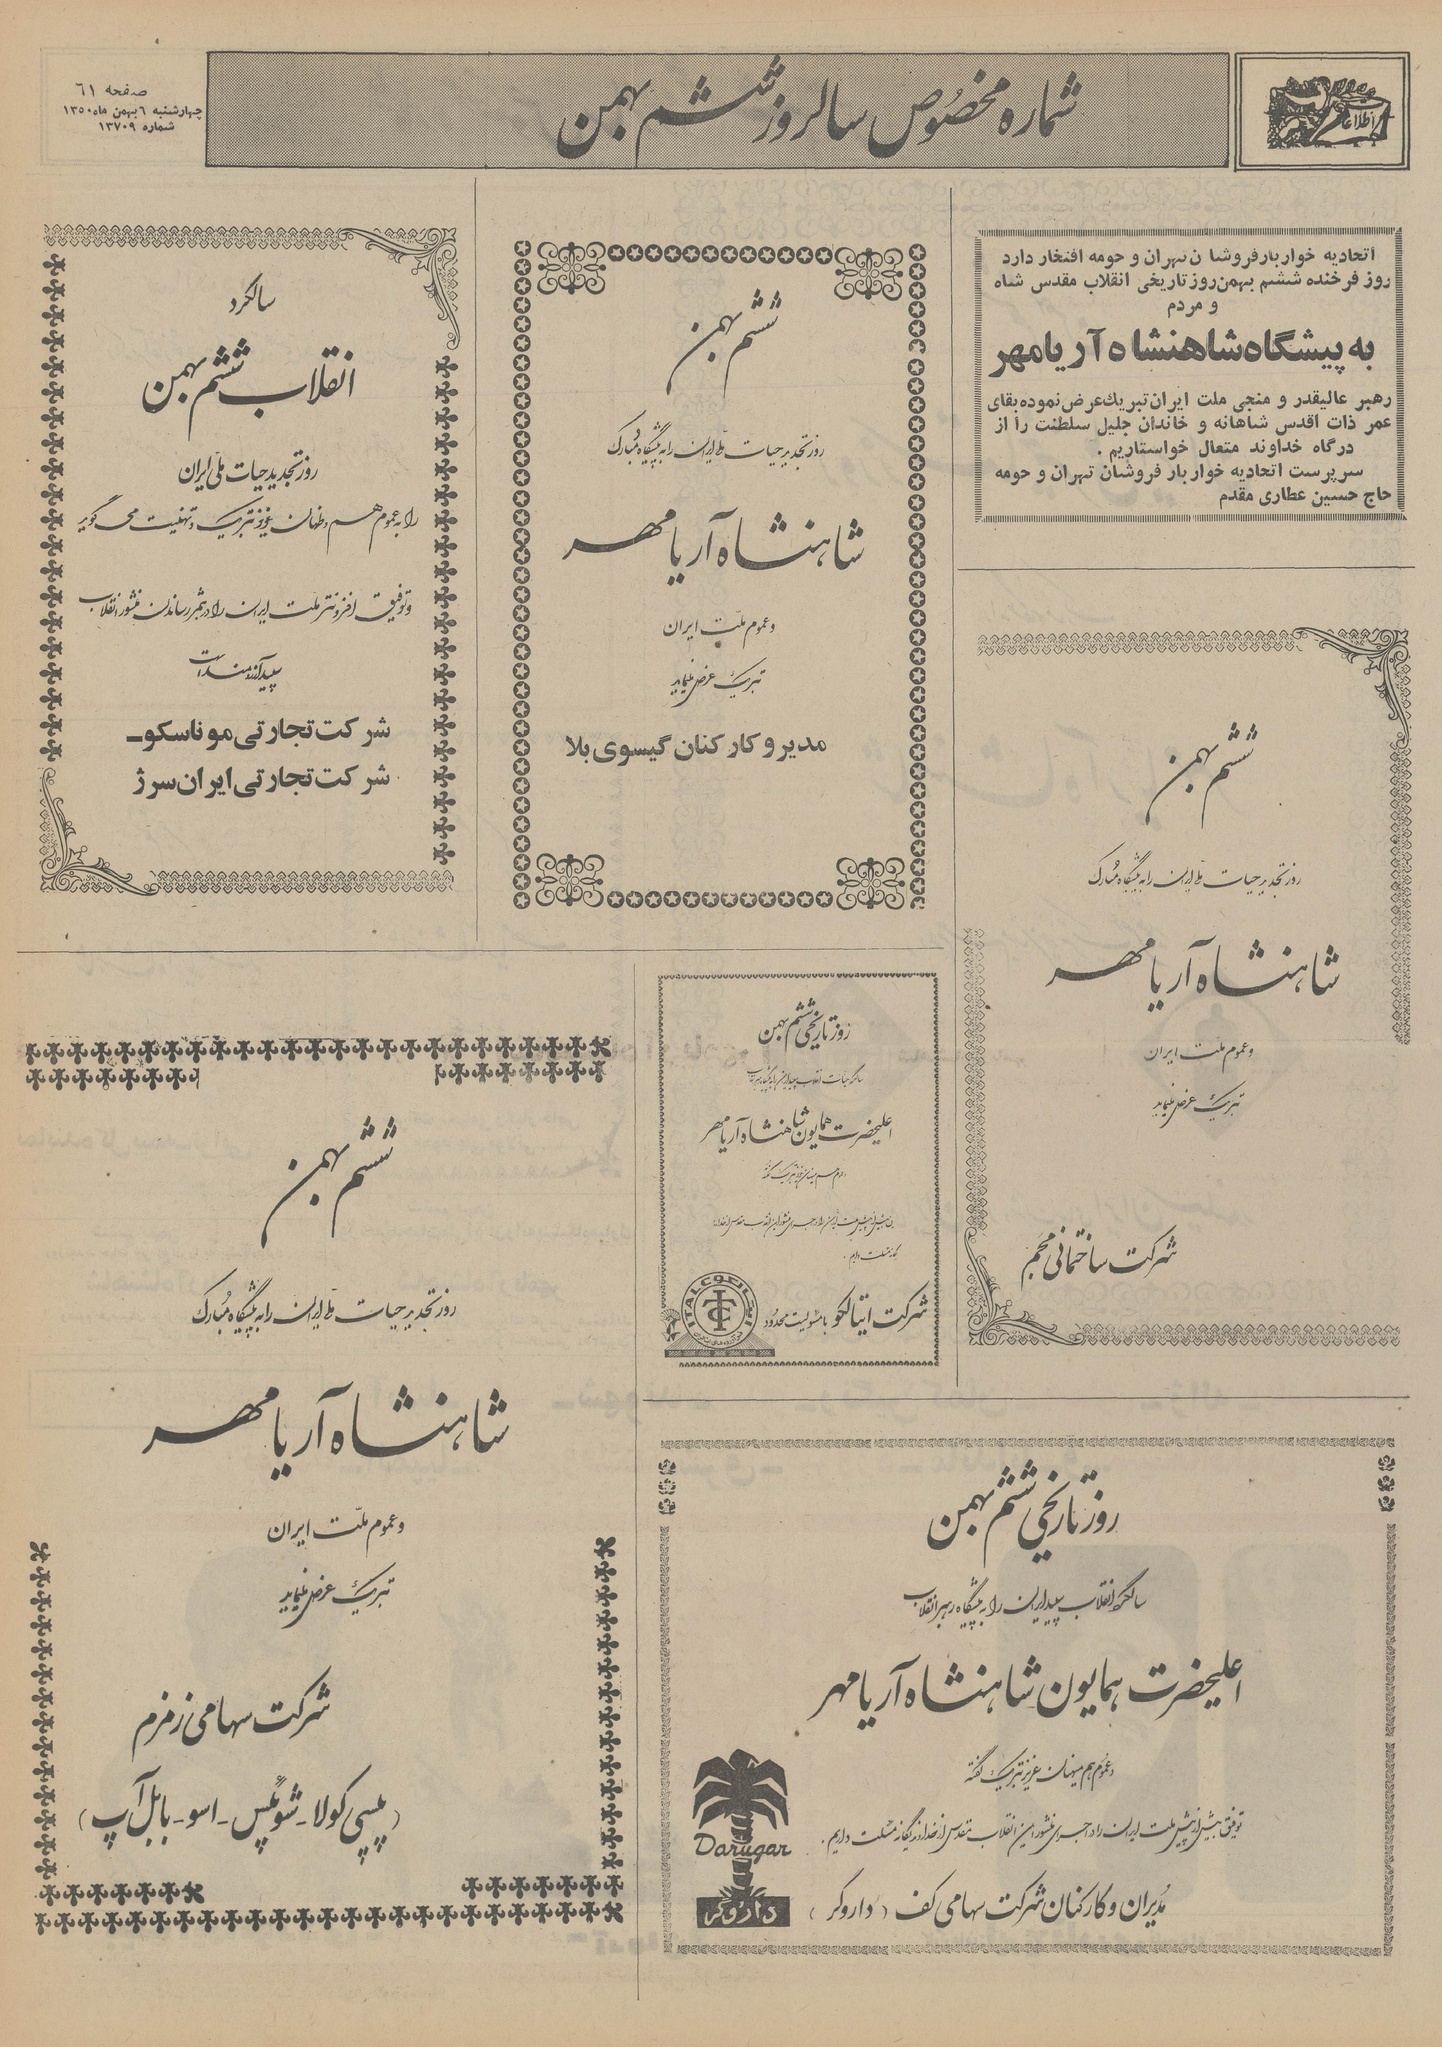 اطلاعات
شماره مخصوص سالروز ششم بهمن
صفحه ۶۱
چهارشنبه ۶ بهمن ماه ۱۳۵۰
شماره ۱۳۷۰۹
اتحادیه خواربارفروشان تهران و حومه افتخار دارد
روز فرخنده ششم بهمن‌روز تاریخی انقلاب مقدس شاه
و مردم
به پیشگاه شاهنشاه آریامهر
رهبر عالیقدر و منجی ملت ایران تبریك عرض نموده بقای
عمر ذات اقدس شاهانه و خاندان جلیل سلطنت را از
درگاه خداوند متعال خواستاریم .
سرپرست اتحادیه خواربار فروشان تهران و حومه
حاج حسین عطاری مقدم
ششم بهمن
روز تجدید حیات ملی ایران را به پیشگاه مبارک
شاهنشاه آریامهر
و عموم ملت ایران
تبریک عرض مینماید
مدیر و کارکنان گیسوی بلا
سالگرد
انقلاب ششم بهمن
روز تجدید حیات ملی ایران
را به عموم هم وطنان عزیز تبریک و تهنیت می گوید
و توفیق افزونتر ملت ایران را در بثمر رساندن منشور انقلاب
سپید آرزومند است
شرکت تجارتی موناسکو ـ
شرکت تجارتی ایران سرژ
ششم بهمن
روز تجدید حیات ملی ایران را به پیشگاه مبارک
شاهنشاه آریامهر
و عموم ملت ایران
تبریک عرض مینماید
شرکت ساختمانی محجم
روز تاریخی ششم بهمن
اعلیحضرت همایون شاهنشاه آریامهر
شرکت ایتالکو با مسئولیت محدود
ITALCO
ایتالکو
ششم بهمن
روز تجدید حیات ملی ایران را به پیشگاه مبارک
شاهنشاه آریامهر
و عموم ملت ایران
تبریک عرض مینماید
شرکت سهامی زمزم
(پپسی کولا ـ شوئپس ـ اسو ـ بابل آپ)
روز تاریخی ششم بهمن
سالگرد انقلاب سپید ایران را به پیشگاه رهبر انقلاب
اعلیحضرت همایون شاهنشاه آریامهر
و عموم هم میهنان عزیز تبریک گفته
توفیق بیش از پیش ملت ایران را در اجرای منشور این انقلاب مقدس از خداوند یگانه مسئلت داریم .
مدیران و کارکنان شرکت سهامی کف (داروگر)
Darugar
داروگر